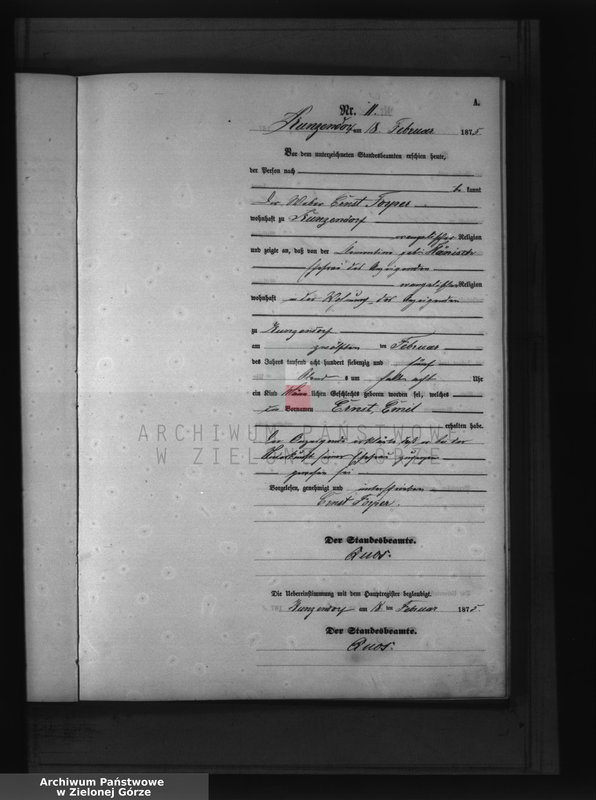 A.
Nr. 11.
Kunzendorf am 18. Februar 1875.
Vor dem unterzeichneten Standesbeamten erschien heute,
der Person nach
be kannt
der Weber Ernst
wohnhaft zu Kunzendorf
evangelischer Religion
und zeigte an, daß von der Ernestine geb.
Ehefrau des Anzeigenden
evangelischer Religion
wohnhaft in der Wohnung des Anzeigenden
zu Kunzendorf
am zwölften ten Februar
des Jahres tausend acht hundert siebenzig und fünf
Abend s um halb acht Uhr
ein Kind männlichen Geschlechts geboren worden sei, welches
die Vornamen Ernst, Emil
erhalten habe.
Der Anzeigende erklärte daß er bei der
Niederkunft seiner Ehefrau zugegen
gewesen sei
Vorgelesen, genehmigt und unterschrieben
Ernst
Der Standesbeamte.
Quos.
Die Uebereinstimmung mit dem Hauptregister beglaubigt.
Kunzendorf am 18 ten Februar 1875.
Der Standesbeamte.
Quos.
ARCHIWUM PAŃSTWOWE
W ZIELONEJ GÓRZE
Archiwum Państwowe
w Zielonej Górze